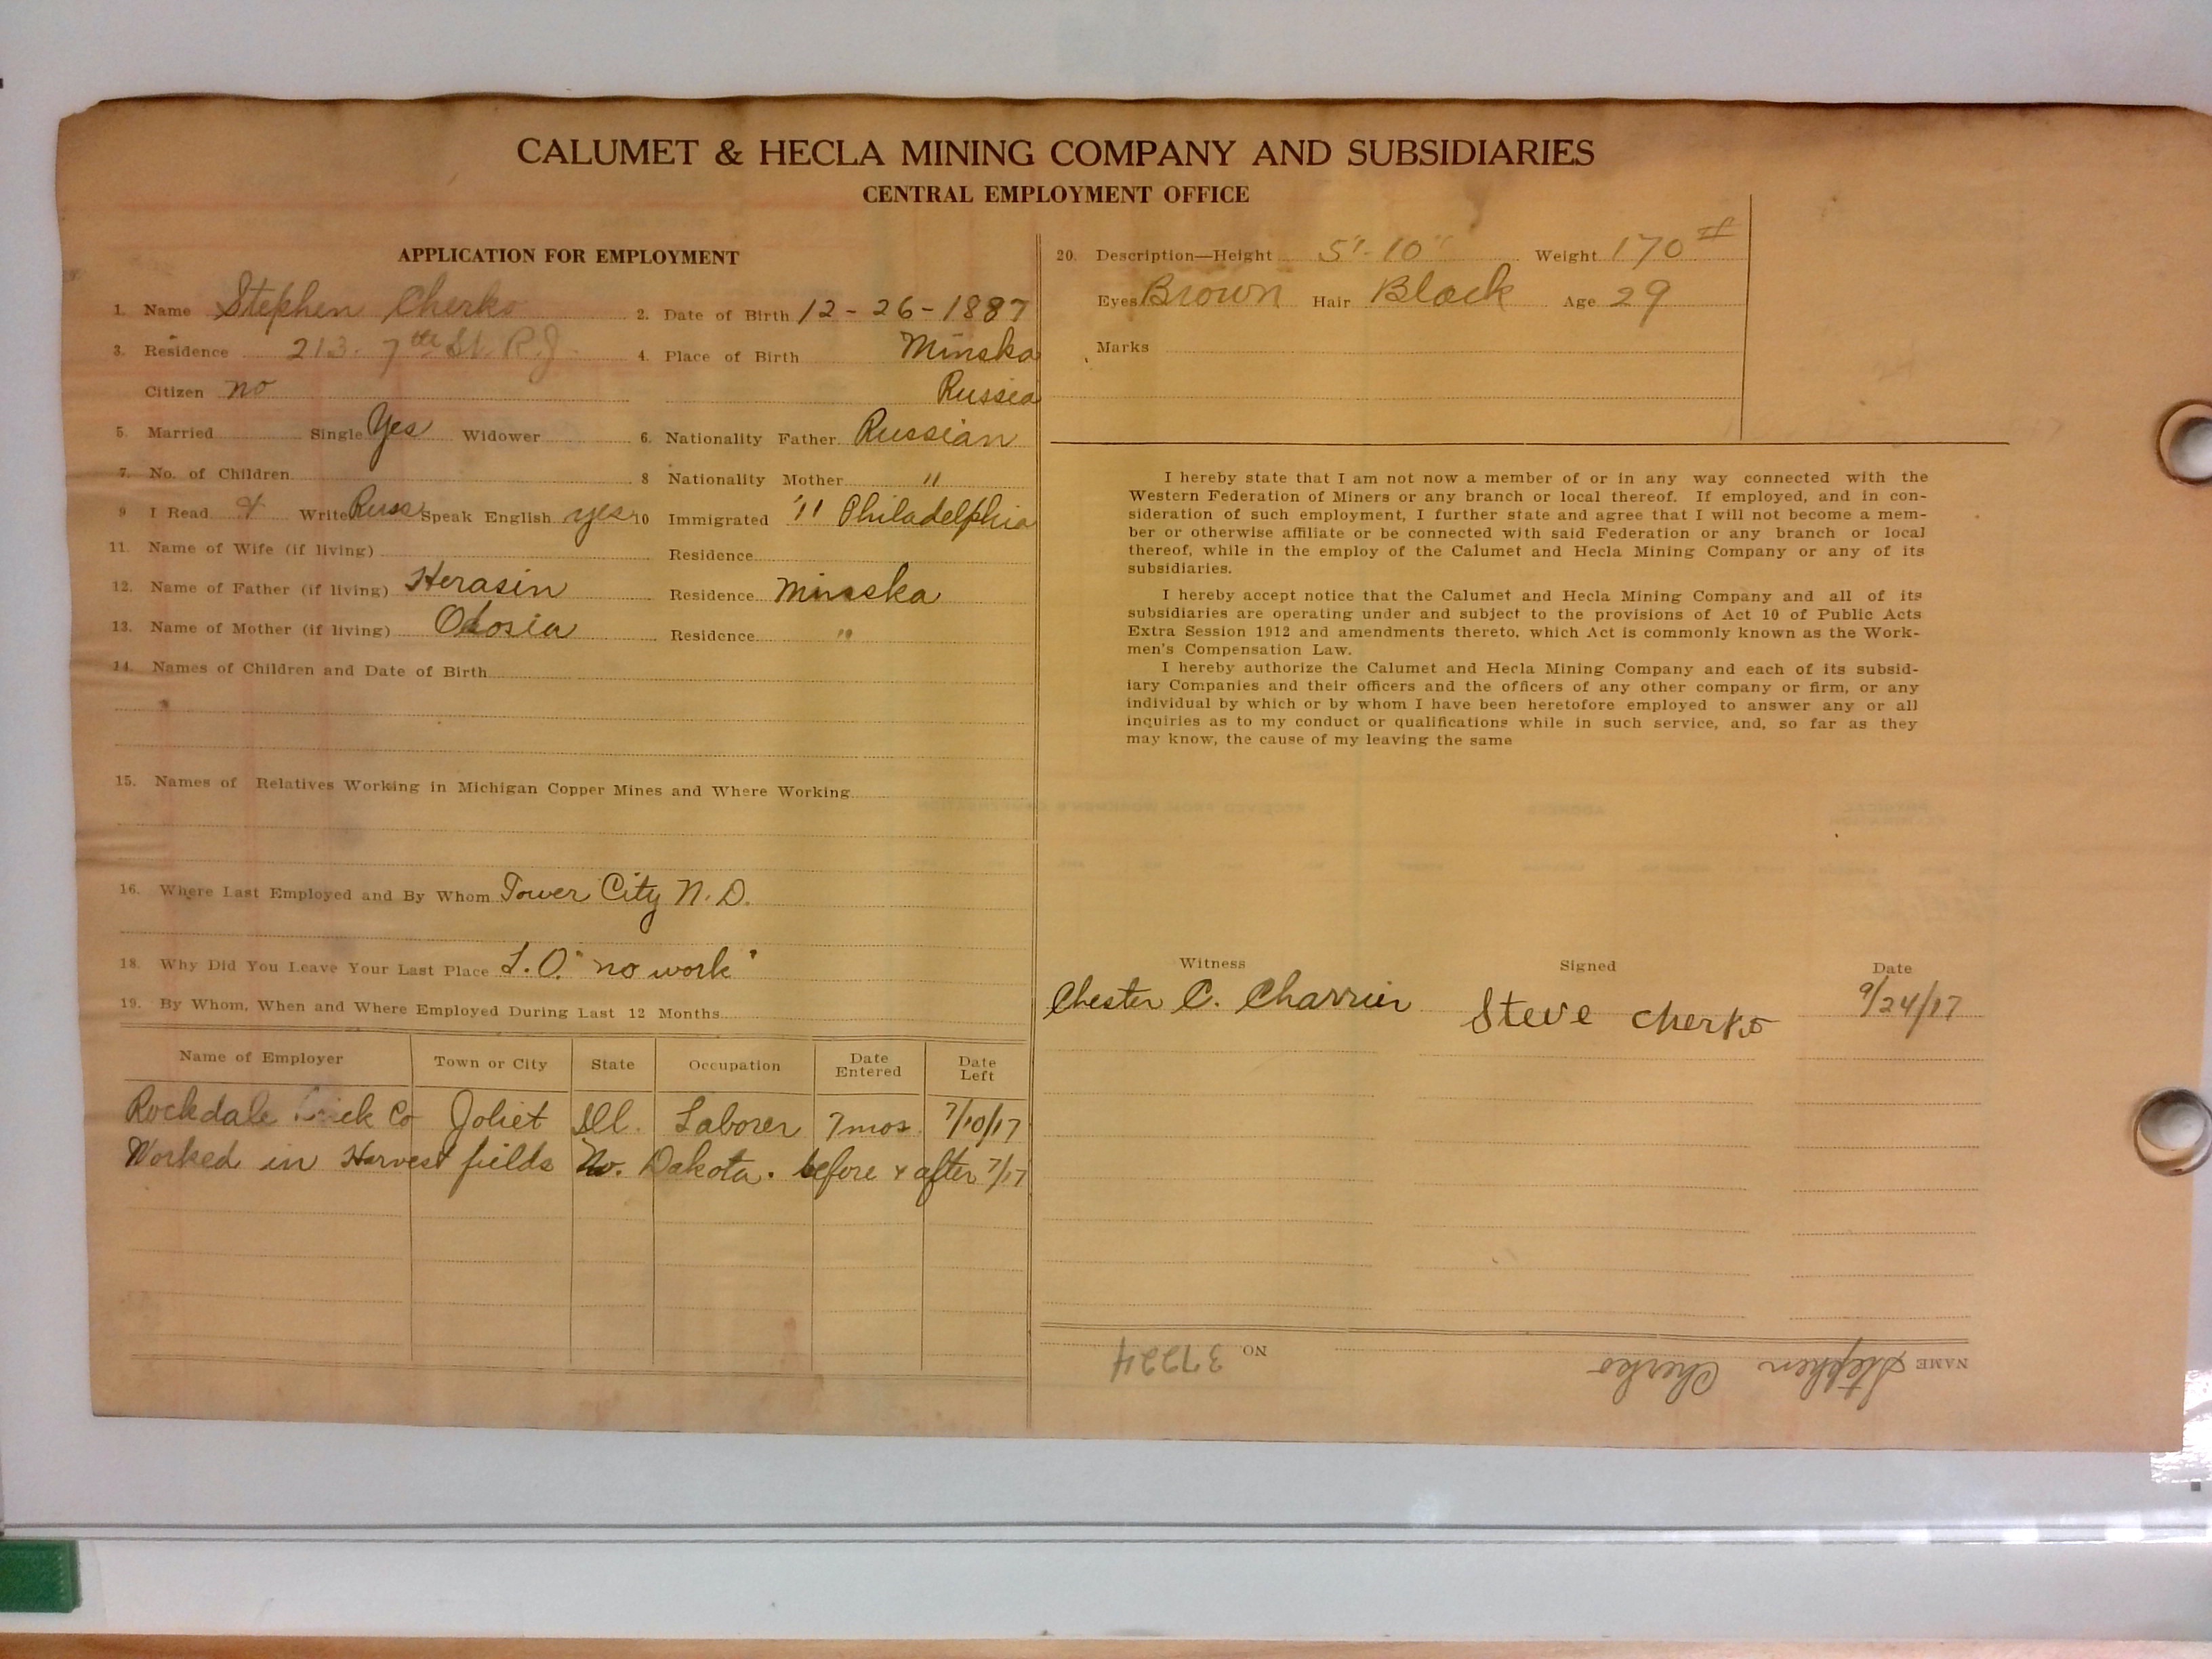 CALUMET & HECLA MINING COMPANY AND SUBSIDIARIES
CENTRAL EMPLOYMENT OFFICE
APPLICATION FOR EMPLOYMENT
1. Name Stephen Cherko 2. Date of Birth 12-26-1887
3. Residence 213. 7th St. R.J. 4. Place of Birth Minska
Citizen no Russia
5. Married Single Yes Widower 6. Nationality Father Russian
7. No. of Children 8 Nationality Mother "
9 I Read & Write Russ Speak English yes 10 Immigrated '11 Philadelphia
11. Name of Wife (if living) Residence
12. Name of Father (if living) Herasin Residence Minska
13. Name of Mother (if living) Residence "
14. Names of Children and Date of Birth
15. Names of Relatives Working in Michigan Copper Mines and Where Working
16. Where Last Employed and By Whom Tower City N.D.
18. Why Did You Leave Your Last Place L.O. "no work"
19. By Whom, When and Where Employed During Last 12 Months
Name of Employer Town or City State Occupation Date Entered Date Left
Rockdale Co Joliet Ill. Laborer 7 mos. 7/10/17
Worked in Harvest fields No. Dakota. before & after 7/17
20. Description—Height 5'-10" Weight 170#
Eyes Brown Hair Black Age 29
Marks
I hereby state that I am not now a member of or in any way connected with the
Western Federation of Miners or any branch or local thereof. If employed, and in con-
sideration of such employment, I further state and agree that I will not become a mem-
ber or otherwise affiliate or be connected with said Federation or any branch or local
thereof, while in the employ of the Calumet and Hecla Mining Company or any of its
subsidiaries.
I hereby accept notice that the Calumet and Hecla Mining Company and all of its
subsidiaries are operating under and subject to the provisions of Act 10 of Public Acts
Extra Session 1912 and amendments thereto, which Act is commonly known as the Work-
men's Compensation Law.
I hereby authorize the Calumet and Hecla Mining Company and each of its subsid-
iary Companies and their officers and the officers of any other company or firm, or any
individual by which or by whom I have been heretofore employed to answer any or all
inquiries as to my conduct or qualifications while in such service, and, so far as they
may know, the cause of my leaving the same
Witness Signed Date
Chester C. Charrier Steve Cherko 9/24/17
NAME Stephen Cherko NO 37224